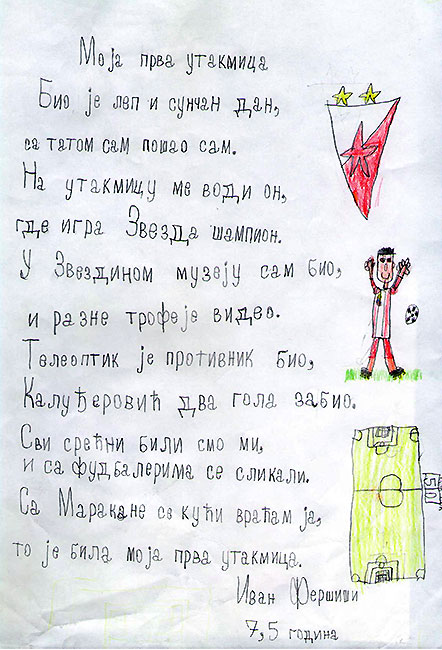 Моја прва утакмица
Био је леп и сунчан дан,
са татом сам пошао сам.
На утакмицу ме води он,
где игра Звезда шампион.
У Звездином музеју сам био,
и разне трофеје видео.
Телеоптик је противник био,
Калуђеровић два гола забио.
Сви срећни били смо ми,
и са фудбалерима се сликали.
Са Маракане се кући враћам ја,
то је била моја прва утакмица.
Иван Фершиши
7,5 година